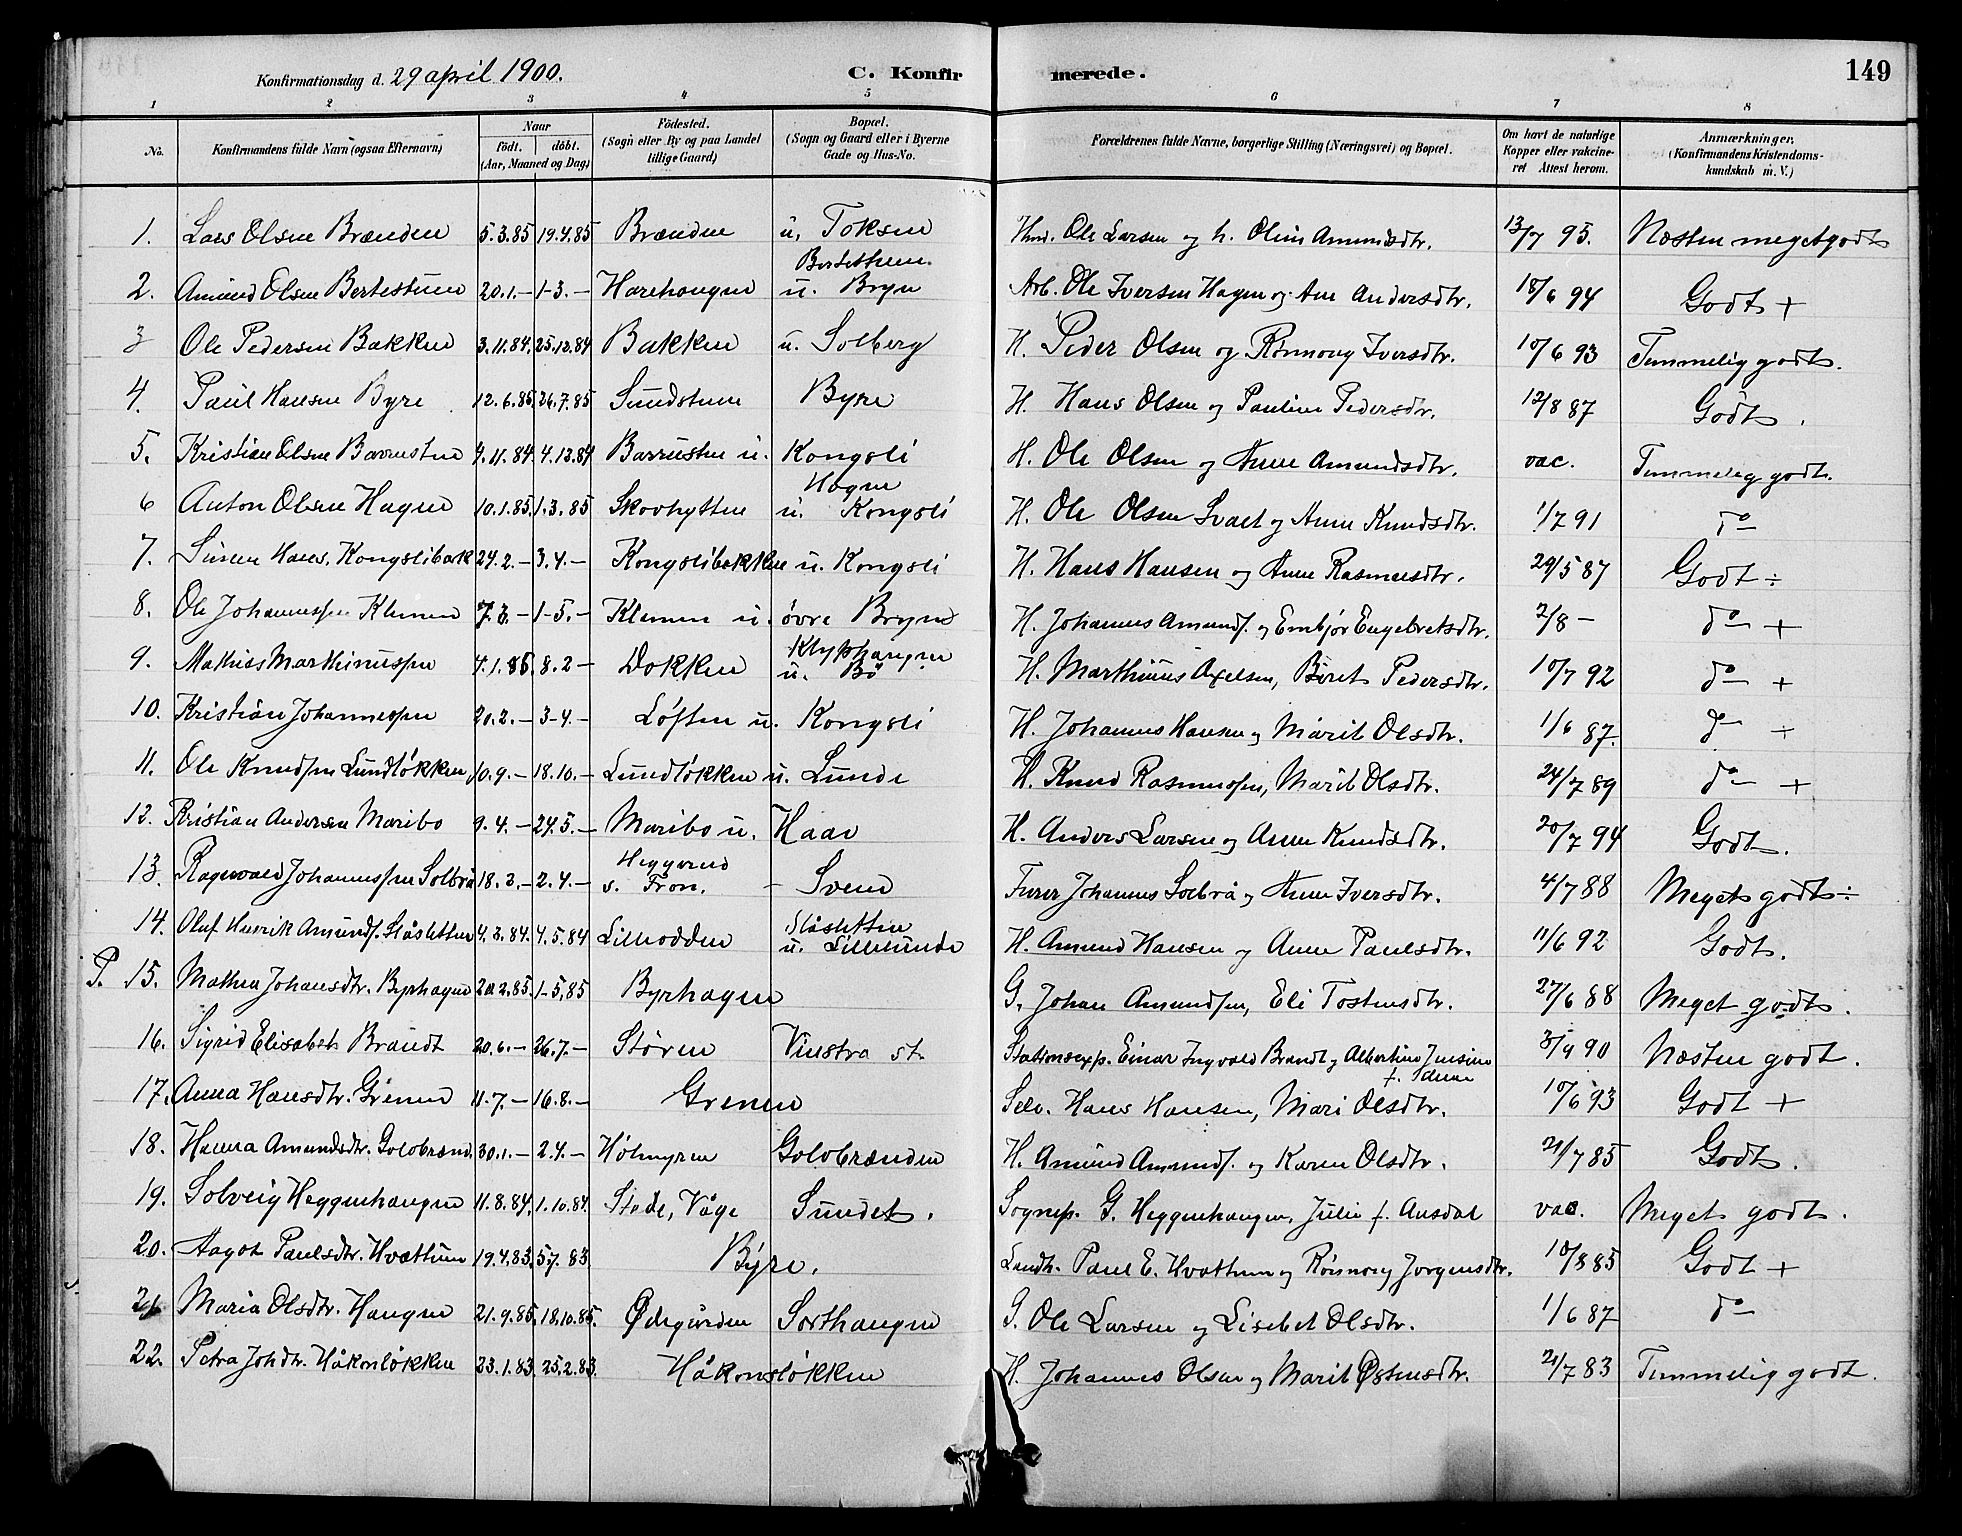 149
Konfirmationsdag d. 29 april 1900. C. Konfirmerede.
1 2 3 4 5 6 7 8
No. Konfirmandens fulde Navn (ogsaa Efternavn) Naar födt. döbt. (Aar, Maaned og Dag) Födested. (Sogn eller By og paa Landet tillige Gaard) Bopæl. (Sogn og Gaard eller i Byerne Gade og Hus-No. Forældrenes fulde Navne, borgerlige Stilling (Næringsvei) og Bopæl. Om havt de naturlige Kopper eller vakcineret Attest herom. Anmærkninger, (Konfirmandens Kristendomskundskab m. V.)
1. Lars Olsen Brænden 5.3.85 19.4.85 Brænden u. Toksen Hmd. Ole Larsen og h. Oline Amundsdtr. 13/7 95. Næsten meget godt
2. Amund Olsen Bertestuen 20.1.– 1-3.– Harehaugen Bertestuen u. Bryn Arb. Ole Iversen Hagen og Ane Andersdtr. 18/6 94 Godt +
3 Ole Pedersen Bakken 3.11.84. 25.12.84 Bakken u. Solberg H. Peder Olsen og Rønnoug Iversdtr. 10/6 93 Temmelig godt.
4. Paul Hansen Byre 12.6.85. 26.7.85 Sundstuen Byre H. Hans Olsen og Pauline Pedersdtr. 12/8 87 Godt.
5. Kristian Olsen Barrusten 9.11.84. 4.12.84 Barrusten u. Kongsli H. Ole Olsen og Anne Amundsdtr. vac. Temmelig godt.
6 Anton Olsen Hagen 10.1.85. 1.3.85 Skovhytten Hagen u. Kongsli H. Ole Olsen Svart og Anne Knudsdtr. 1/7 91 do
7. Simen Hans. Kongslibak 24.2.– 3.4.– Kongslibakken u. Kongsli H. Hans Hansen og Anne Rasmusdtr. 29/5 87 Godt ÷
8. Ole Johannessen Klemen 7.3.– 1-5.– Klemen u. øvre Bryn H. Johannes Amunds. og Embjør Engebretsdtr. 2/8 – do +
9. Mathias Marthinussen 4.1.85. 8.2– Dokken Klyphaugen u. Bø H. Marthinus Axelsen, Beret Pedersdtr. 10/7 92 do +
10. Kristian Johannessen 20.2.– 3-4.– Løften u. Kongsli H. Johannes Hansen og Marit Olsdtr. 1/6 87. do +
11. Ole Knudsen Lundløkken 10.9.– 18.10.– Lundløkken u. Lunde H. Knud Rasmussen, Marit Olsdtr. 24/7 89 do +
12. Kristian Andersen Maribo 9.4.– 24.5.– Maribo u. Haav H. Anders Larsen og Anne Knudsdtr. 20/7 94 Godt.
13. Ragnvald Johannessen Solbrå 18.3.– 2.4.– Heggerud s. Fron. – Svem Furer Johannes Solbrå og Anne Iversdtr. 4/7 88 Meget godt ÷
14. Oluf Henrik Amunds. Slåsletten 4.3.84. 4.5.84 Lilleodden Slåsletten u. Lillelunde H. Amund Hansen og Anne Paulsdtr. 11/6 92 Godt.
P. 15. Mathea Johansdtr. Byrhagen 20.2.85. 1-5.85 Byrhagen G. Johan Amundsen, Eli Tostensdtr. 27/6 88 Meget godt.
16. Sigrid Elisabeth Brandt 20.6.– 26.7.– Støren Vinstra st. Stationsexp. Einar Ingvald Brandt og Albertine Jensine f. 3/9 90 Næsten godt.
17. Anna Hansdtr. Grenen 11.7.– 16.8.– Grenen Selv. Hans Hansen, Mari Olsdtr. 10/6 93 Godt +
18. Hanna Amundsdtr. Golobrænd. 30.1.– 2.4.– Hølmyren Golobrænden H. Amund Amunds. og Karen Olsdtr. 21/7 85 Godt.
19. Solveig Heggenhaugen 11.8.84. 1.10.84. Stede, Våge Sundet. Sognep. G. Heggenhaugen, Julie f. Ausdal vac. Meget godt.
20. Aagot Paulsdtr. Hvattum 19.4.83. 5.7.83 Byre. Landh. Paul E. Hvattum og Rønnoug Jorgensdtr. 10/8 85 Godt +
21. Maria Olsdtr. Haugen 21.9.85. 18.10.85. Ødegården Sorthaugen G. Ole Larsen og Lisebet Olsdtr. 1/6 87 do
22. Petra Johdtr. Håkonsløkken 23.1.83. 25.2.83. Håkonsløkken H. Johannes Olsen og Marit Østensdtr. 21/7 83 Temmelig godt.